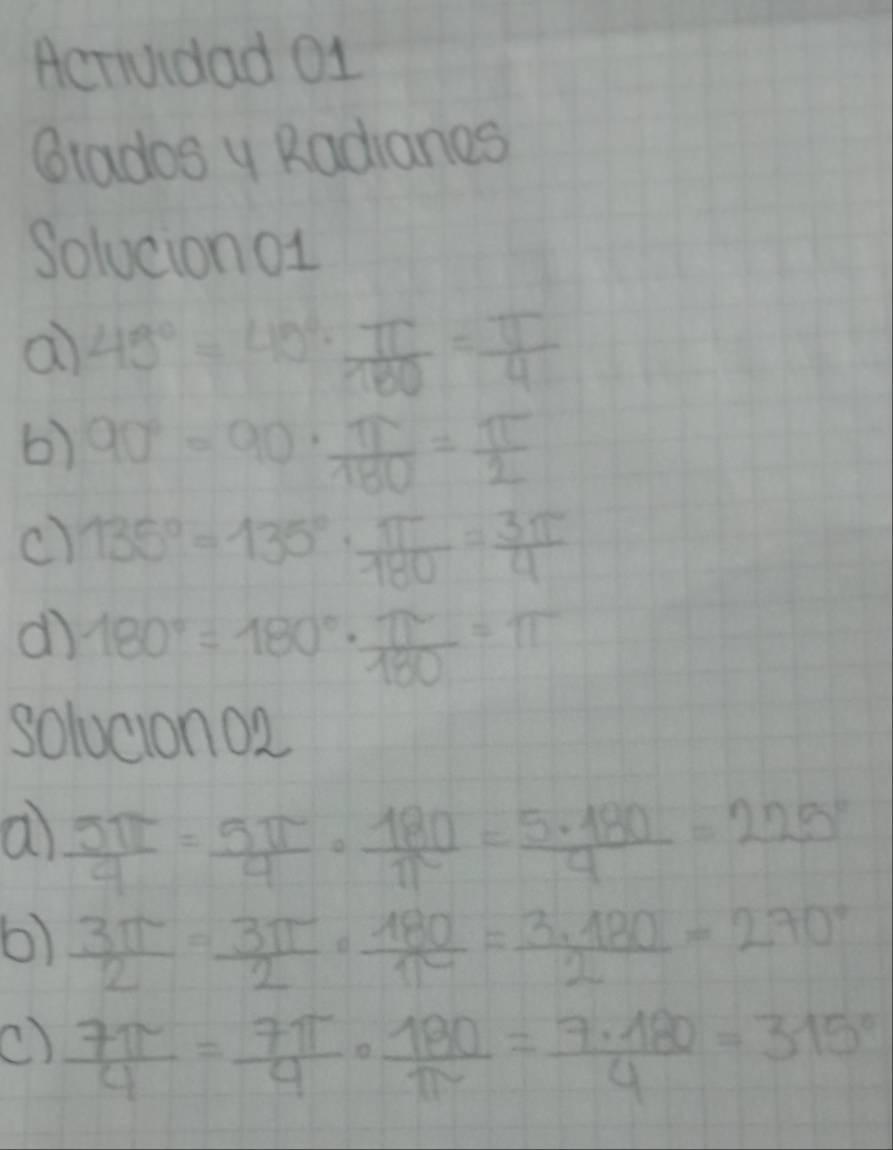 Actividad 01
Grados y Radianes
Solucion 01
a) 45° = 45° · π/180 = π/4
b) 90° = 90 · π/180 = π/2
c) 135° = 135° · π/180 = 3π/4
d) 180° = 180° · π/180 = π
Solucion 02
a) 5π/4 = 5π/4 · 180/π = 5·180/4 = 225°
b) 3π/2 = 3π/2 · 180/π = 3·180/2 = 270°
c) 7π/4 = 7π/4 · 180/π = 7·180/4 = 315°